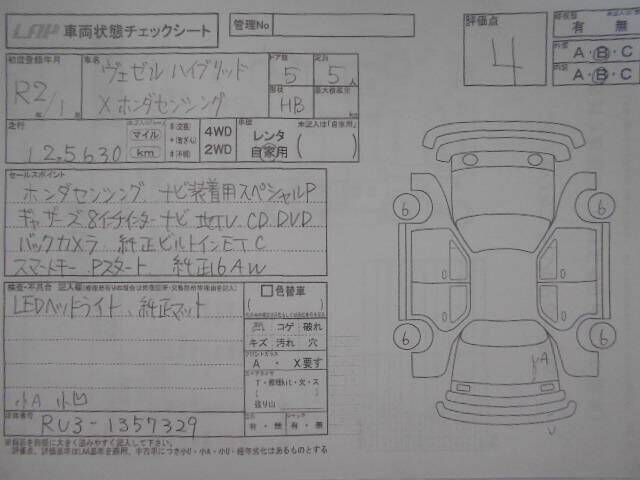 LAA 車両状態チェックシート
管理No
評価点
4
修復歴
有 無
外装
A・B・C
内装
A・B・C
初度登録年月
R2/1
車名
ヴェゼル ハイブリッド
X ホンダセンシング
ドア数
5
定員
5人
形状
HB
最大積載量
走行
125630
マイル
km
4WD
2WD
車歴
未記入は「自家用」
レンタ
自家用
セールスポイント
ホンダセンシング ナビ装着用スペシャルP
ギャザーズ 8インチインターナビ 地TV. CD. DVD
バックカメラ 純正ビルトインETC
スマートキー Pスタート 純正16AW
検査・不具合
記入欄
LEDヘッドライト、純正マット
小A 小凹
色替車
コゲ 破れ
キズ 汚れ 穴
フロントガラス
A ・ X要す
張り山
有・無
有・無
車体番号
RU3-1357329
6
6
6
6
A
U